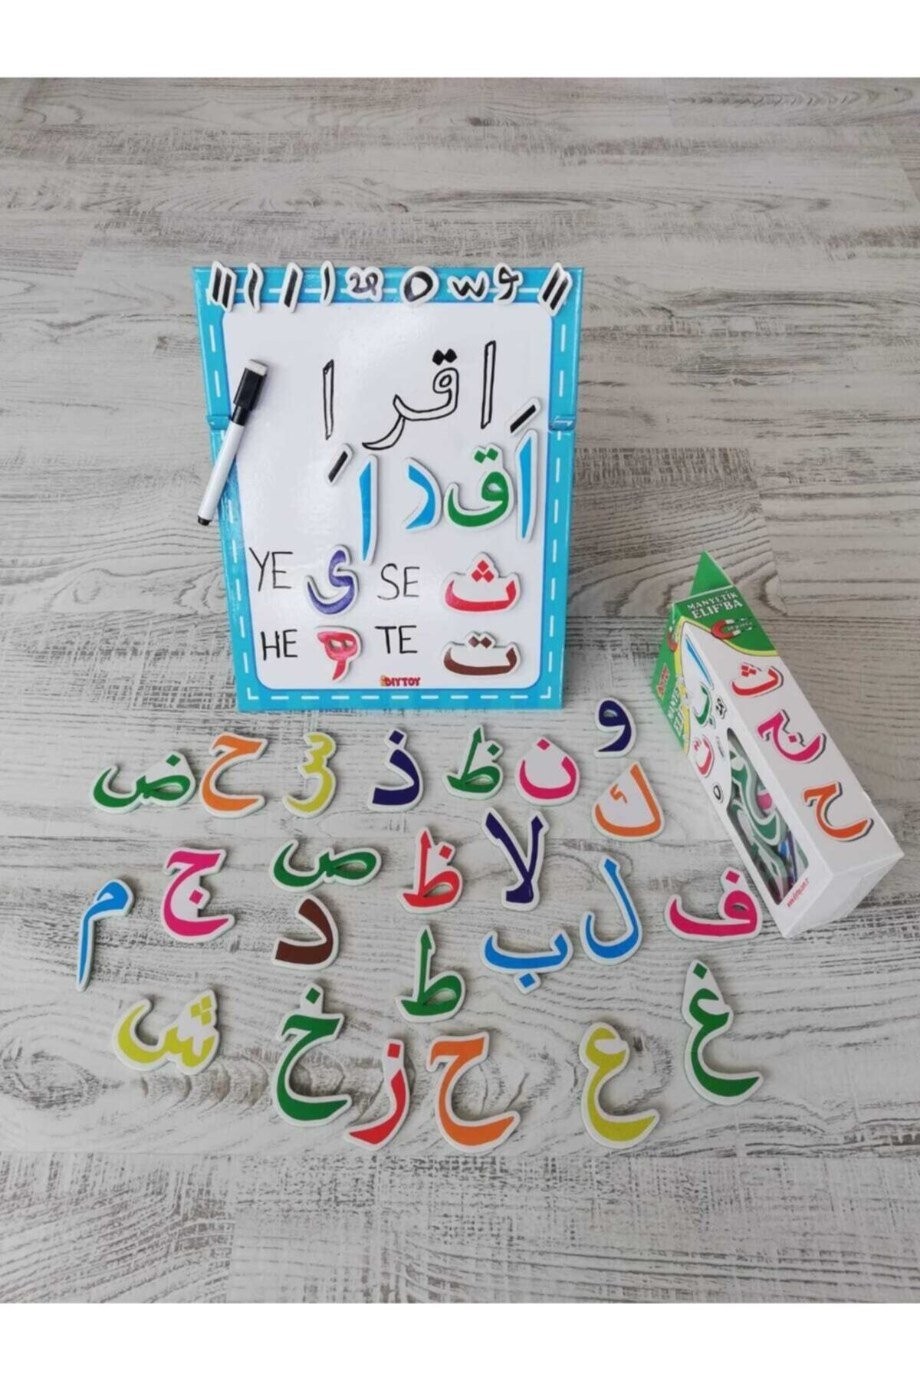 اقرا
اقرا
YE ى SE ث
HE ه TE ت
DIYTOY
MANYETİK
ELİF'BA
ث
ج
ح
و ن ظ ذ س ح ض
ك
ف ل لا ظ ص ج
ب ط د م
غ ع ح ز خ ش